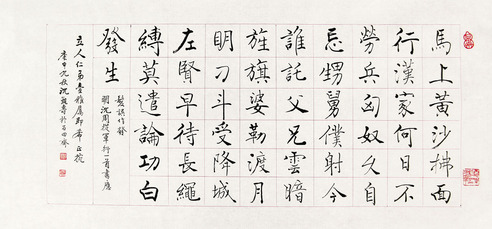 馬上黃沙拂面
行漢家何日不
勞兵匈奴久自
忘甥舅僕射今
誰託父兄雲暗
旌旗婆勒渡月
明刁斗受降城
左賢早待長繩
縛莫遣論功白
發生
髮誤作發
明沈周從軍行一首書應
立人仁弟臺雅屬即希正捥
庚申九秋沈壽於石田齋